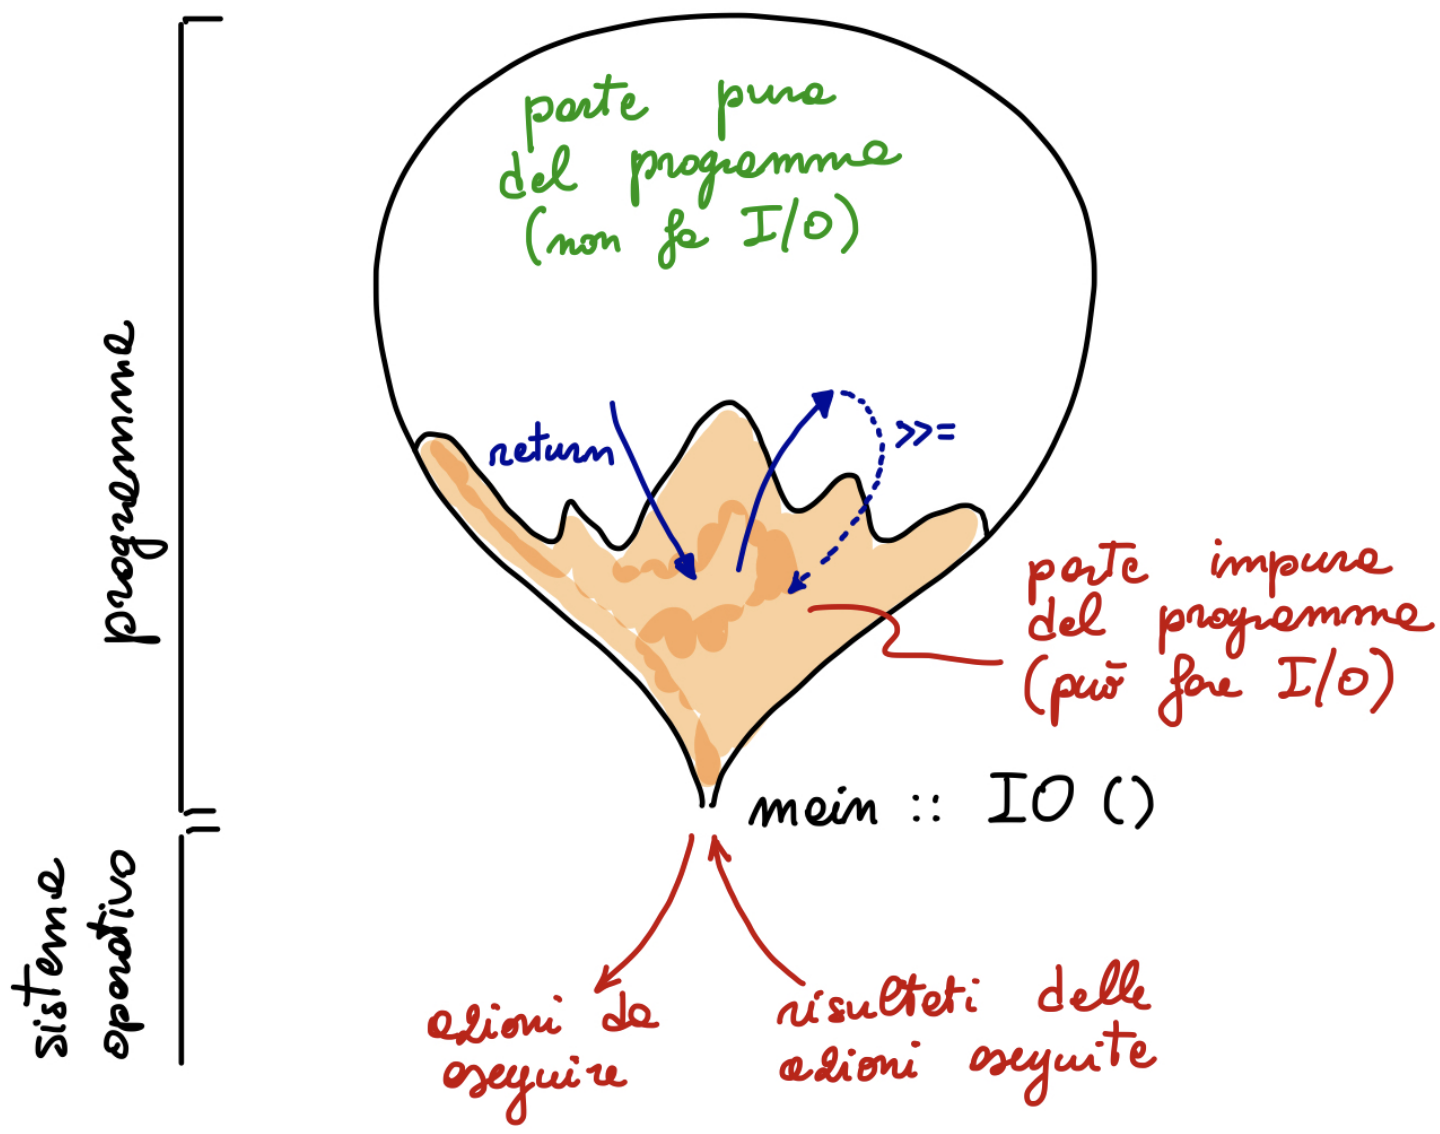 parte pura
del programma
(non fa I/O)
programma
return
>>=
parte impura
del programma
(può fare I/O)
main :: IO ()
sistema
operativo
azioni da
eseguire
risultati delle
azioni eseguite